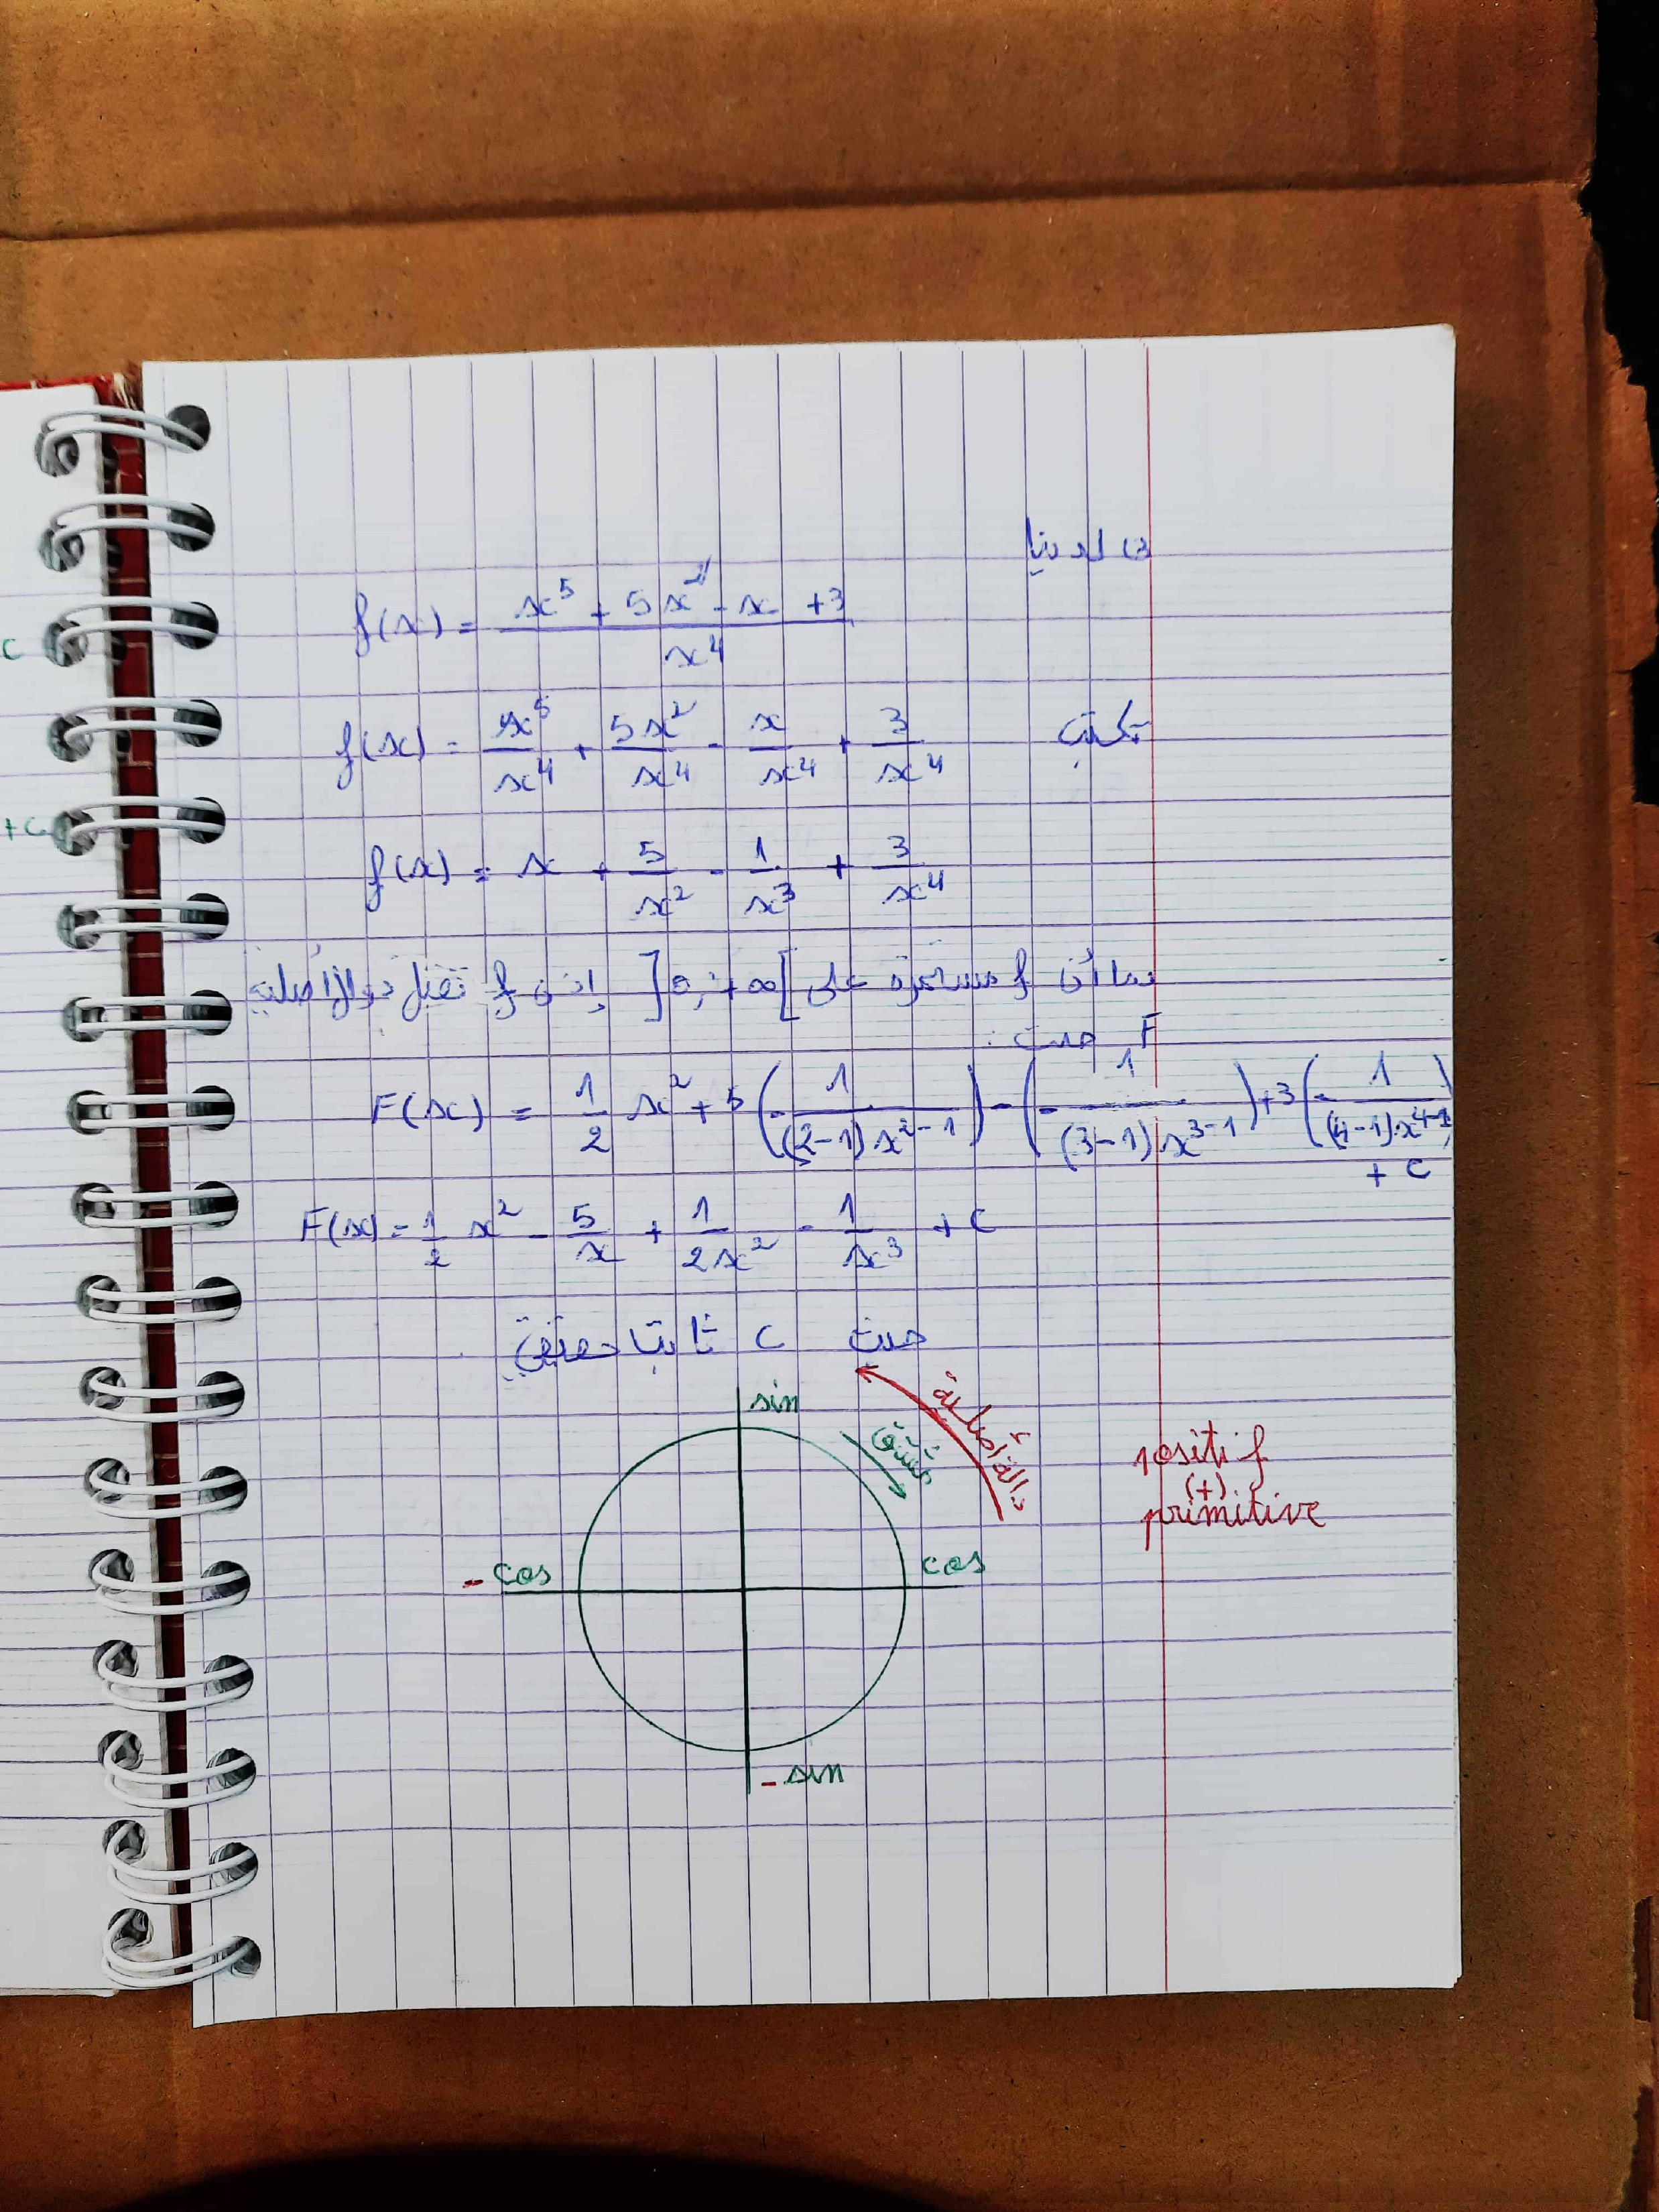 3) لدينا
f(x) = (x^5 + 5x^2 - x + 3) / x^4
نكتب f(x) = x^5/x^4 + 5x^2/x^4 - x/x^4 + 3/x^4
f(x) = x + 5/x^2 - 1/x^3 + 3/x^4
بما أن f مستمرة على ]0 ; +∞[ إذن f تقبل دوال أصلية
F حيث :
F(x) = 1/2 x^2 + 5(-1/((2-1)x^(2-1))) - (-1/((3-1)x^(3-1))) + 3(-1/((4-1)x^(4-1)))
+ C
F(x) = 1/2 x^2 - 5/x + 1/(2x^2) - 1/x^3 + C
حيث C ثابتا حقيقي
sin
دالة أصلية
مشتق
positif
(+)
primitive
- cos
cos
- sin
C
+ C